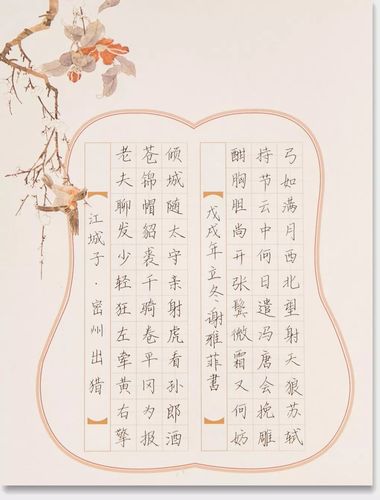 江城子·密州出猎
老夫聊发少轻狂左牵黄右擎
苍锦帽貂裘千骑卷平冈为报
倾城随太守亲射虎看孙郎酒
戊戌年立冬谢雅菲書
酣胸胆尚开张鬓微霜又何妨
持节云中何日遣冯唐会挽雕
弓如满月西北望射天狼苏轼